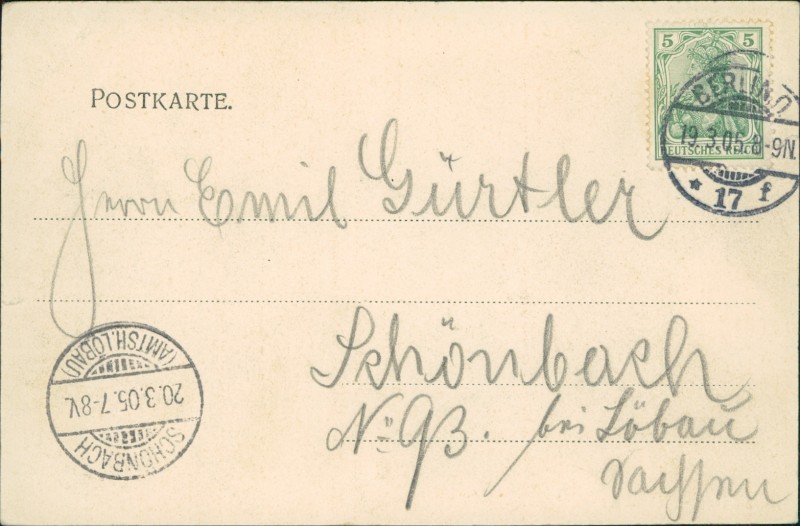 5 5
DEUTSCHES REICH
BERLIN O
19.3.05.8-9N.
* 17 f
POSTKARTE.
Herrn Emil Gürtler
Schönbach
No 93. bei Löbau
Sachsen
(AMTSH. LÖBAU)
20.3.05.7-8V.
SCHÖNBACH